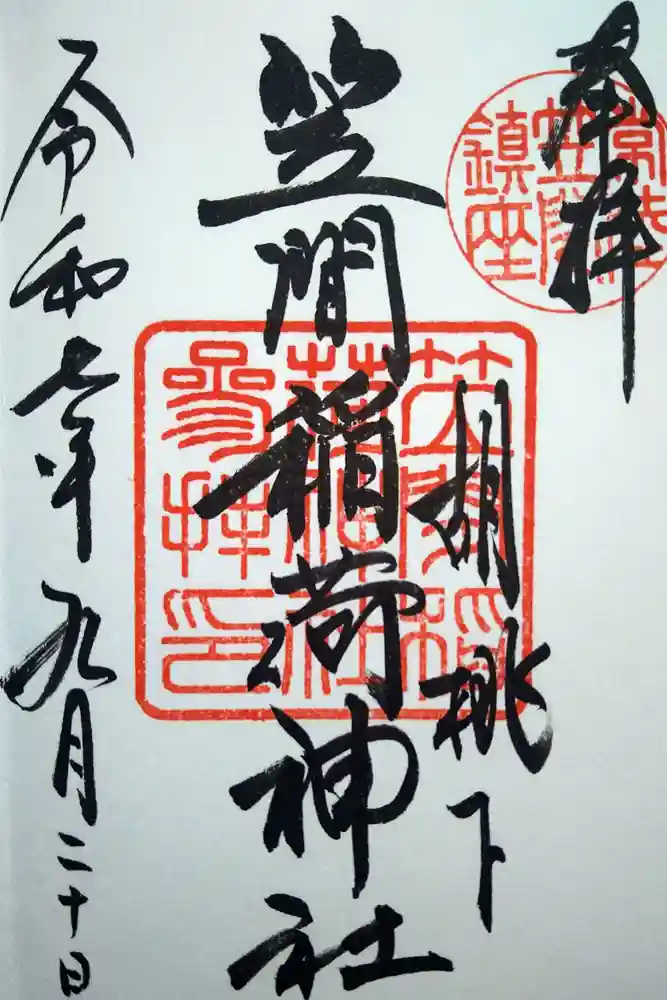 奉拝
常陸
笠間
鎮座
胡桃下
笠間稲荷神社
笠間稲
荷神社
参拝印
令和七年九月二十日